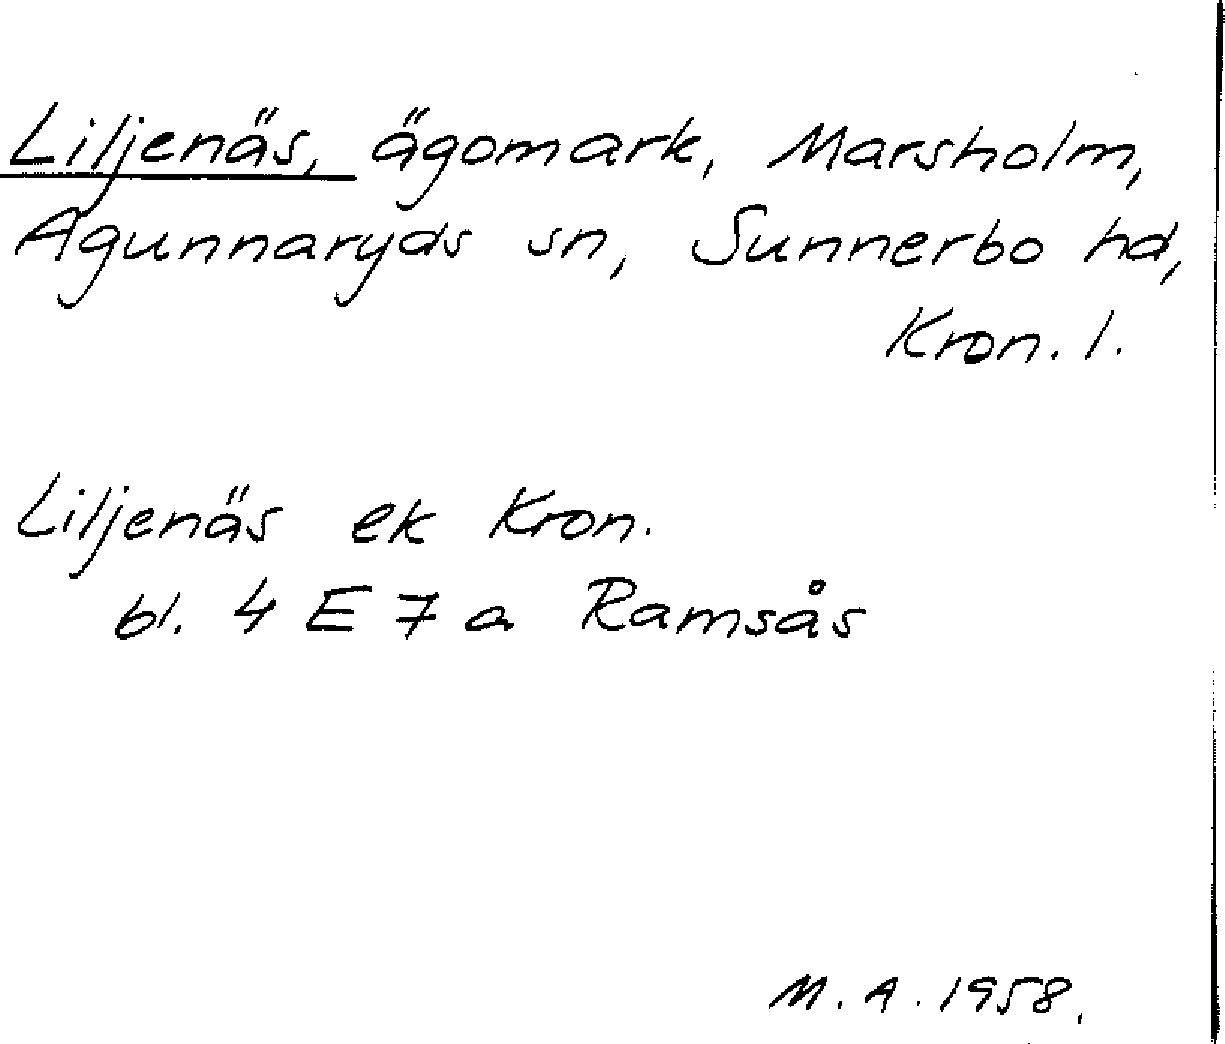 Liljenäs, ägomark, Marsholm,
Agunnaryds sn, Sunnerbo hd,
Kron. l.
Liljenäs ek Kron.
bl. 4 E 7 a Ramsås
M. A. 1958.